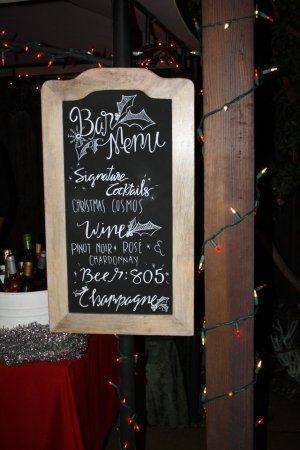 Bar
Menu
Signature
Cocktails
CHRISTMAS COSMOS
Wine
PINOT NOIR • ROSÉ • &
CHARDONNAY
Beer: 805
Champagne